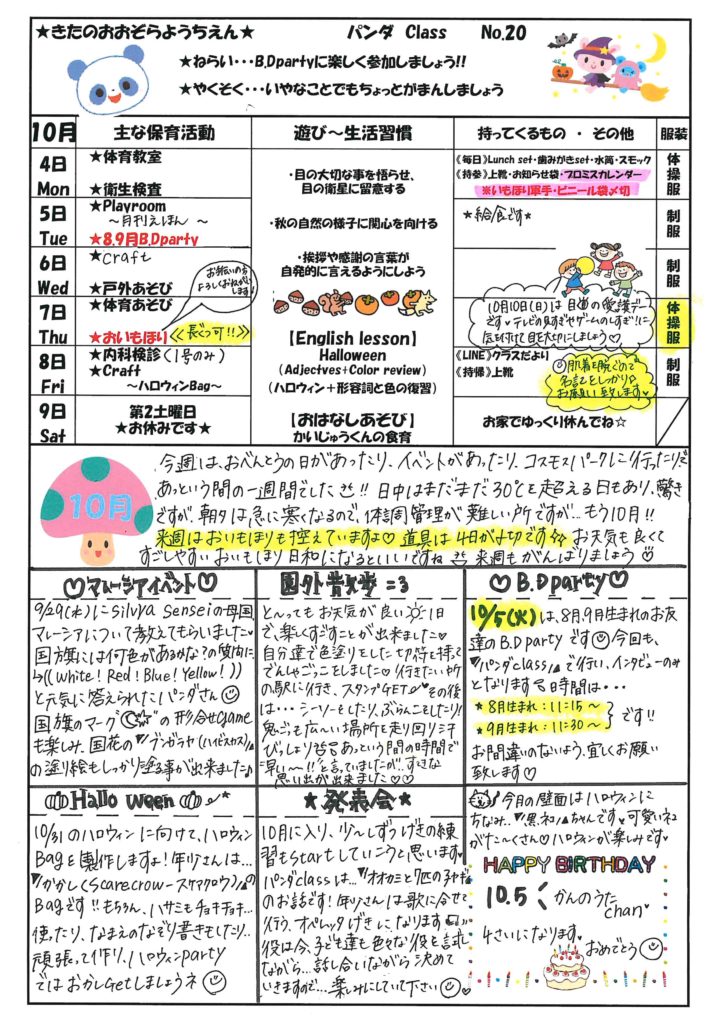 ★きたのおおぞらようちえん★ パンダ Class No.20
★ねらい・・・B,Dpartyに楽しく参加しましょう!!
★やくそく・・・いやなことでもちょっとがまんしましょう
10月 主な保育活動 遊び～生活習慣 持ってくるもの ・ その他 服装
4日 Mon
★体育教室
★衛生検査
5日 Tue
★Playroom
～月刊えほん～
★8.9月B.Dparty
6日 Wed
★Craft
★戸外あそび
お支払いの方
よろしくおねがい
します!
7日 Thu
★体育あそび
★おいもほり 《長ぐつ可!!》
8日 Fri
★内科検診(1号のみ)
★Craft
～ハロウィンBag～
9日 Sat
第2土曜日
★お休みです★
・目の大切な事を悟らせ、
目の衛星に留意する
・秋の自然の様子に関心を向ける
・挨拶や感謝の言葉が
自発的に言えるようにしよう
【English lesson】
Halloween
(Adjectves+Color review)
(ハロウィン+形容詞と色の復習)
【おはなしあそび】
かいじゅうくんの食育
《毎日》Lunch set・歯みがきset・水筒・スモック
《持参》上靴・お知らせ袋・プロミスカレンダー
※いもほり軍手・ビニール袋〆切
★給食です★
10月10日(日)は目の愛護デー
です♡テレビの見すぎやゲームのしすぎ!に
気を付けて目を大切にしましょう♡
《LINE》クラスだより
《持帰》上靴
◎肌着も脱ぐので
名記をしっかり
お願い致します♡
お家でゆっくり休んでね☆
体操服
制服
制服
体操服
制服
10月
今週は、おべんとうの日があったり、イベントがあったり、コスモスパークに行ったりと
あっという間の一週間でした!! 日中はまだまだ30℃を超える日もあり、驚き
ですが、朝夕は急に寒くなるので、体調管理が難しい所ですが…もう10月!!
来週はおいもほりも控えていますよ♡道具は4日が〆切です☆☆お天気も良くて
すごしやすいおいもほり日和になるといいですね 来週もがんばりましょう♡
♡マレーシアイベント♡
9/29(水)にSilvya Senseiの母国
マレーシアについて教えてもらいました♡
国旗には何色があるかな?の質問に
も((White! Red! Blue! Yellow!))
と元気に答えられたパンダさん☺
国旗のマーク"☾☆"の形合せgame
も楽しみ、国花の"ブンガラヤ(ハイビスカス)"
の塗り絵もしっかり塗る事が出来ました♪
園外散歩=3
とーってもお天気が良い☀1日
で、楽しくすごすことが出来ました♡
自分達で色塗りをした切符を持って
でんしゃごっこをしました♡行きたい場所
の駅に行き、スタンプGET♡その後
は…シーソーをしたり、ぶらんこをしたり!
鬼ごっこも広ーい場所を走り回り汗
びっしょり!あっという間の時間で
"早いー!!"と言っていましたが、すてきな
思い出が出来ました♡♡
♡B.D party♡
10/5(火)は、8月、9月生まれのお友
達のB.D partyです☺今回も、
"パンダclass"で行い、インタビューのみ
となります 日時間は…
★8月生まれ:11:15～
★9月生まれ:11:30～
です!!
お間違いのないよう、宜しくお願い
致します♡
Hallo ween
10/31のハロウィンに向けて、ハロウィン
Bagを製作しますよ!年少さんは…
"かかし(Scarecrow-スケアクロウ)"の
Bagです!!もちろん、ハサミもチョキチョキ…
使ったり、なまえのなぞり書きもしたり…
頑張って作り、ハロウィンparty
ではおかしGetしましょうネ☺
★発表会★
10月に入り、少～しずつげきの練
習もstartしていこうと思います♥
パンダclassは…"オオカミと7匹の子ヤギ"
のお話です!年少さんは歌に合せて
行う、オペレッタげきになります
役は今、子ども達も色々な役を試し
ながら…話し合いながら決めて
いきますので…楽しみにしていて下さい☺♥
今月の壁面はハロウィンに
ちなみ…"黒ネコ"ちゃんです♥可愛いネコ
がたーくさん♡ハロウィンが楽しみです♥
HAPPY BIRTHDAY
10.5 かんのうた
chan
4さいになります。
おめでとう☺